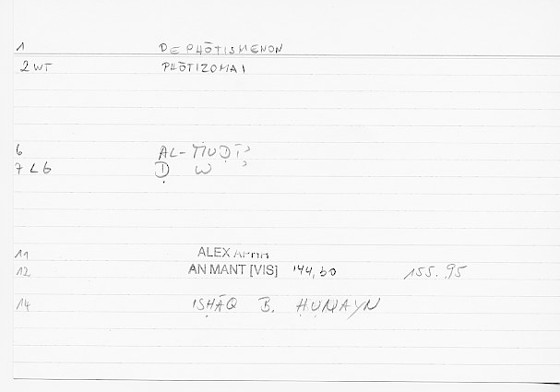 1 DEPHŌTISMENON
2 WT PHŌTIZOMAI
6 AL-MUḌĪʾ
7 LG Ḍ W ʾ
11 ALEX APHR
12 AN MANT [VIS] 144,60 155.95
14 ISḤĀQ B. ḤUNAYN